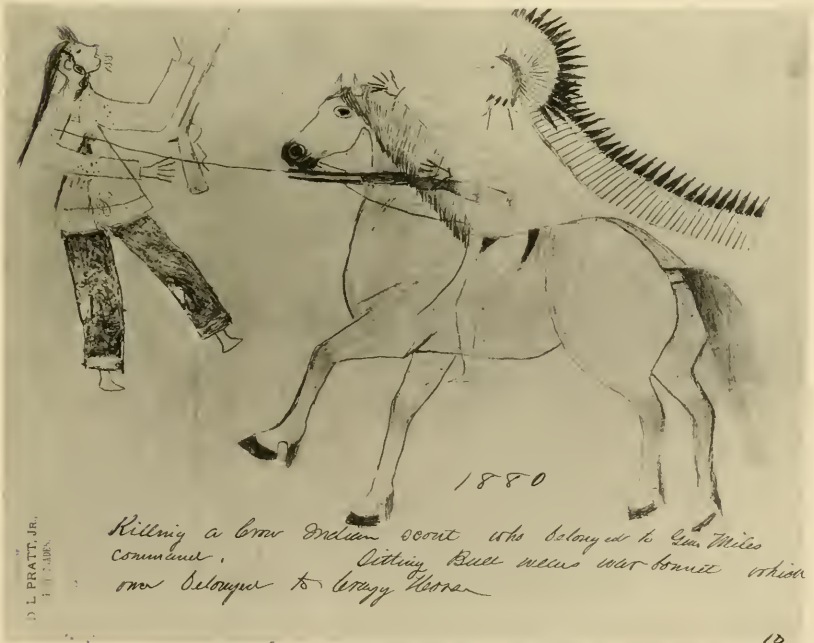 1880
Killing a Crow Indian scout who belonged to Gen. Miles
command. Sitting Bull wears war bonnet which
once belonged to Crazy Horse
D L PRATT, JR.,